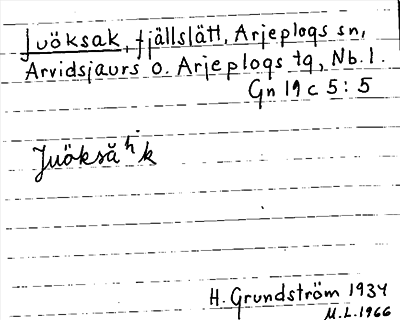 Juöksak, fjällslätt, Arjeplogs sn,
Arvidsjaurs o. Arjeplogs tg, Nb.l.
Gn 19 c 5:5
Juöksă ʰk
H. Grundström 1934
M.L. 1966